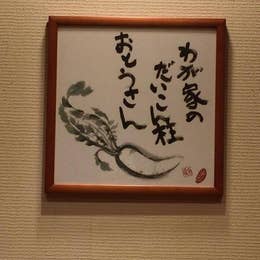 わが家の
だいこん柱
おとうさん